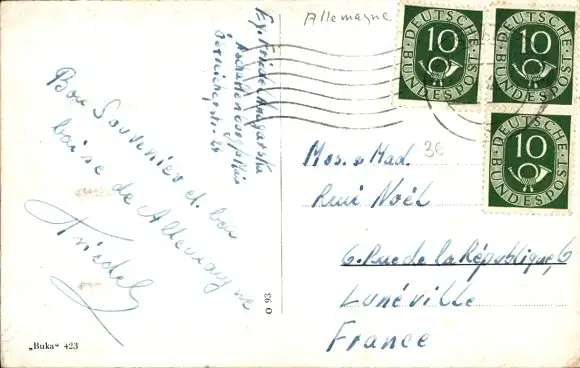 Allemagne
DEUTSCHE
10
BUNDESPOST
DEUTSCHE
10
BUNDESPOST
DEUTSCHE
10
BUNDESPOST
Bon Souvenier et bon
baise de Allemangne
Friedel
Mos. & Mad.
38
René Noël
6. Rue de la République, 6
Lunéville
France
O 93
„Buka“ 423